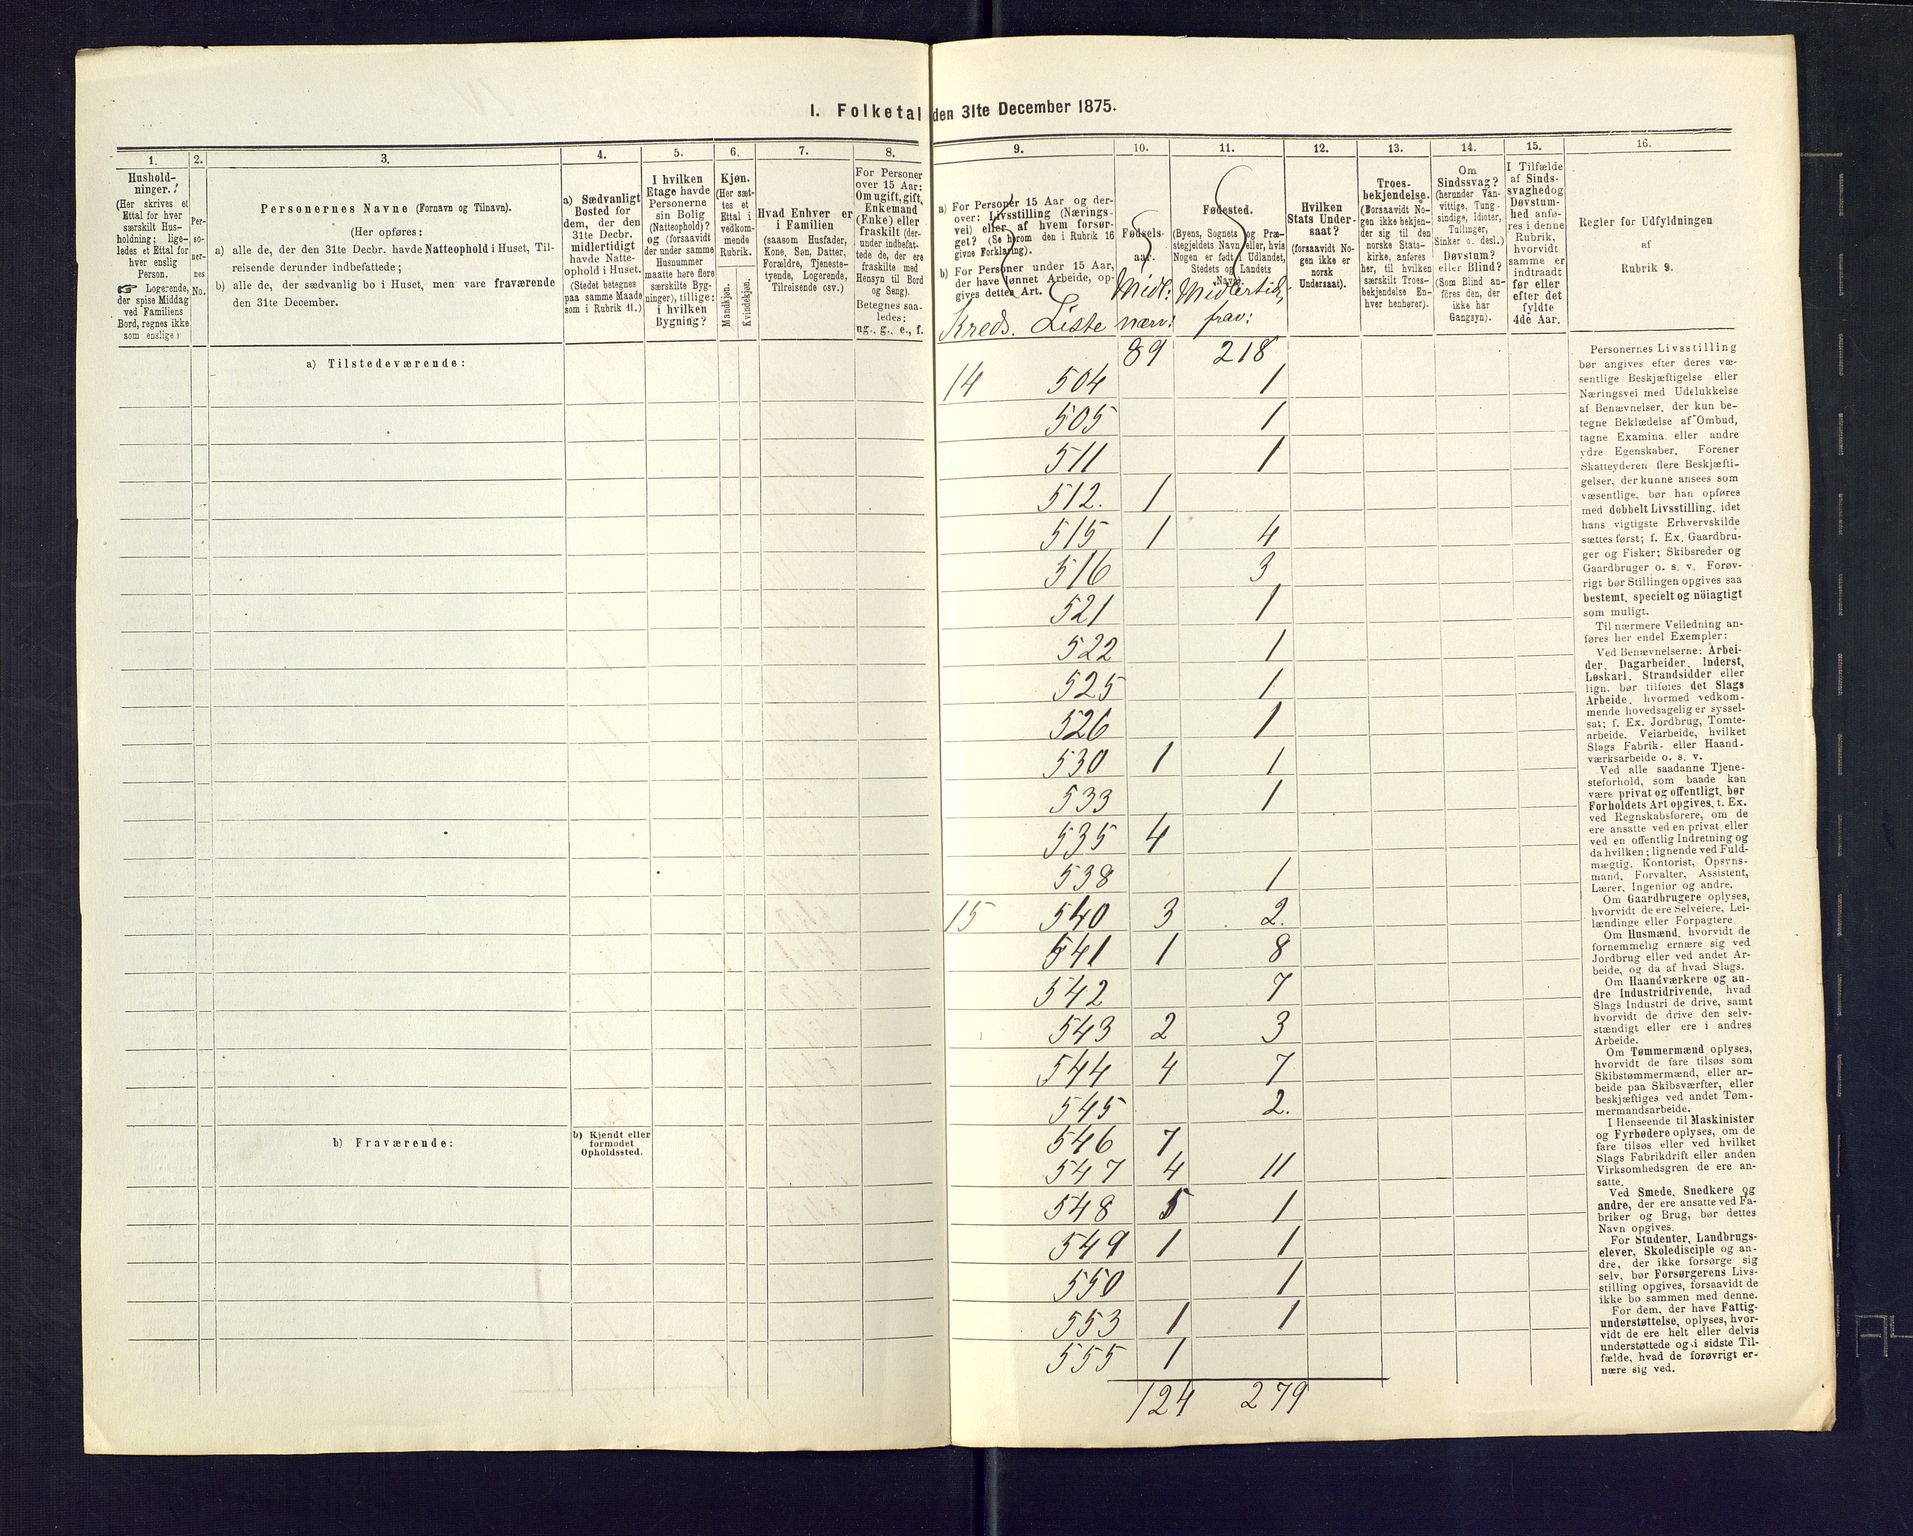 I. Folketal den 31te December 1875.
1. 2. 3. 4. 5. 6. 7. 8. 9. 10. 11. 12. 13. 14. 15. 16.
Hushold-
ninger.
(Her skrives et
Ettal for hver
særskilt Hus-
holdning; lige-
ledes et Ettal for
hver enslig
Person.
☞ Logerende,
der spise Middag
ved Familiens
Bord, regnes ikke
som enslige)
Per-
so-
ner-
nes
No.
Personernes Navne (Fornavn og Tilnavn).
(Her opføres:
a) alle de, der den 31te Decbr. havde Natteophold i Huset, Til-
reisende derunder indbefattede;
b) alle de, der sædvanlig bo i Huset, men vare fraværende
den 31te December.
a) Sædvanligt
Bosted for
dem, der den
31te Decbr.
midlertidigt
havde Natte-
ophold i Huset.
(Stedet betegnes
paa samme Maade
som i Rubrik 11.)
I hvilken
Etage havde
Personerne
sin Bolig
(Natteophold)?
og (forsaavidt
der under samme
Husnummer
maatte høre flere
særskilte Byg-
ninger), tillige:
i hvilken
Bygning?
Kjøn.
(Her sæt-
tes et
Ettal i
vedkom-
mende
Rubrik.
Mandkjøn.
Kvindekjøn.
Hvad Enhver er
i Familien
(saasom Husfader,
Kone, Søn, Datter,
Forældre, Tjeneste-
tyende, Logerende,
Tilreisende osv.)
For Personer
over 15 Aar:
Om ugift, gift,
Enkemand
(Enke) eller
fraskilt (der-
under indbefat-
tede de, der ere
fraskilte med
Hensyn til Bord
og Seng).
Betegnes saa-
ledes:
ug., g., e., f.
a) For Personer 15 Aar og der-
over: Livsstilling (Nærings-
vei) eller af hvem forsør-
get? (Se herom den i Rubrik 16
givne Forklaring).
b) For Personer under 15 Aar,
der have lønnet Arbeide, op-
gives dettes Art.
Kreds. Liste
Fødsels-
aar.
Midl:
nærv:
Fødested.
(Byens, Sognets og Præ-
stegjeldets Navn eller, hvis
Nogen er født i Udlandet,
Stedets og Landets
Navn.
Midlertid.
frav:
Hvilken
Stats Under-
saat?
(forsaavidt No-
gen ikke er
norsk
Undersaat).
Troes-
bekjendelse.
(Forsaavidt No-
gen ikke bekjen-
der sig til den
norske Stats-
kirke, anføres
her, til hvilken
særskilt Troes-
bekjendelse En-
hver henhører).
Om
Sindssvag?
(herunder Van-
vittige, Tung-
sindige, Idioter,
Tullinger,
Sinker o. desl.)
Døvstum?
eller Blind?
(Som Blind an-
føres den, der
ikke har
Gangsyn).
I Tilfælde
af Sinds-
svaghed og
Døvstum-
hed anfø-
res i denne
Rubrik,
hvorvidt
samme er
indtraadt
før eller
efter det
fyldte
4de Aar.
Regler for Udfyldningen
af
Rubrik 9.
a) Tilstedeværende:
89 218
14 504 1
505 1
511 1
512. 1
515 1 4
516 3
521 1
522 1
525 1
526 1
530 1 1
533 1
535 4
538 1
15 540 3 2.
541 1 8
542 7
543 2 3
544 4 7
545 2.
b) Fraværende:
b) Kjendt eller
formodet
Opholdssted.
546 7
547 4 11
548 5 1
549 1 1
550 1
553 1 1
555 1
124 279
Personernes Livsstilling
bør angives efter deres væ-
sentlige Beskjæftigelse eller
Næringsvei med Udelukkelse
af Benævnelser, der kun be-
tegne Beklædelse af Ombud,
tagne Examina eller andre
ydre Egenskaber. Forener
Skatteyderen flere Beskjæfti-
gelser, der kunne ansees som
væsentlige, bør han opføres
med dobbelt Livsstilling, idet
hans vigtigste Erhvervskilde
sættes først; f. Ex. Gaardbru-
ger og Fisker; Skibsreder og
Gaardbruger o. s. v. Forøv-
rigt bør Stillingen opgives saa
bestemt, specielt og nöiagtigt
som muligt.
Til nærmere Veiledning an-
føres her endel Exempler:
Ved Benævnelserne: Arbei-
der, Dagarbeider, Inderst,
Løskarl, Strandsidder eller
lign. bør tilføies det Slags
Arbeide, hvormed vedkom-
mende hovedsagelig er syssel-
sat; f. Ex. Jordbrug, Tomte-
arbeide, Veiarbeide, hvilket
Slags Fabrik- eller Haand-
værksarbeide o. s. v.
Ved alle saadanne Tjene-
steforhold, som baade kan
være privat og offentligt, bør
Forholdets Art opgives, t. Ex.
ved Regnskabsførere, om de
ere ansatte ved en privat eller
ved en offentlig Indretning og
da hvilken; lignende ved Fuld-
mægtig, Kontorist, Opsyns-
mand, Forvalter, Assistent,
Lærer, Ingeniør og andre.
Om Gaardbrugere oplyses,
hvorvidt de ere Selveiere, Lei-
lændinge eller Forpagtere.
Om Husmænd, hvorvidt de
fornemmelig ernære sig ved
Jordbrug eller ved andet Ar-
beide, og da af hvad Slags.
Om Haandværkere og an-
dre Industridrivende, hvad
Slags Industri de drive, samt
hvorvidt de drive den selv-
stændigt eller ere i andres
Arbeide.
Om Tømmermænd oplyses,
hvorvidt de fare tilsøs som
Skibstømmermænd, eller ar-
beide paa Skibsværfter, eller
beskjæftiges ved andet Tøm-
mermandsarbeide.
I Henseende til Maskinister
og Fyrbødere oplyses, om de
fare tilsøs eller ved hvilket
Slags Fabrikdrift eller anden
Virksomhedsgren de ere an-
satte.
Ved Smede, Snedkere og
andre, der ere ansatte ved Fa-
briker og Brug, bør dettes
Navn opgives.
For Studenter, Landbrugs-
elever, Skoledisciple og an-
dre, der ikke forsørge sig
selv, bør Forsørgerens Livs-
stilling opgives, forsaavidt de
ikke bo sammen med denne.
For dem, der have Fattig-
understøttelse, oplyses, hvor-
vidt de ere helt eller delvis
understøttede og i sidste Til-
fælde, hvad de forøvrigt er-
nære sig ved.